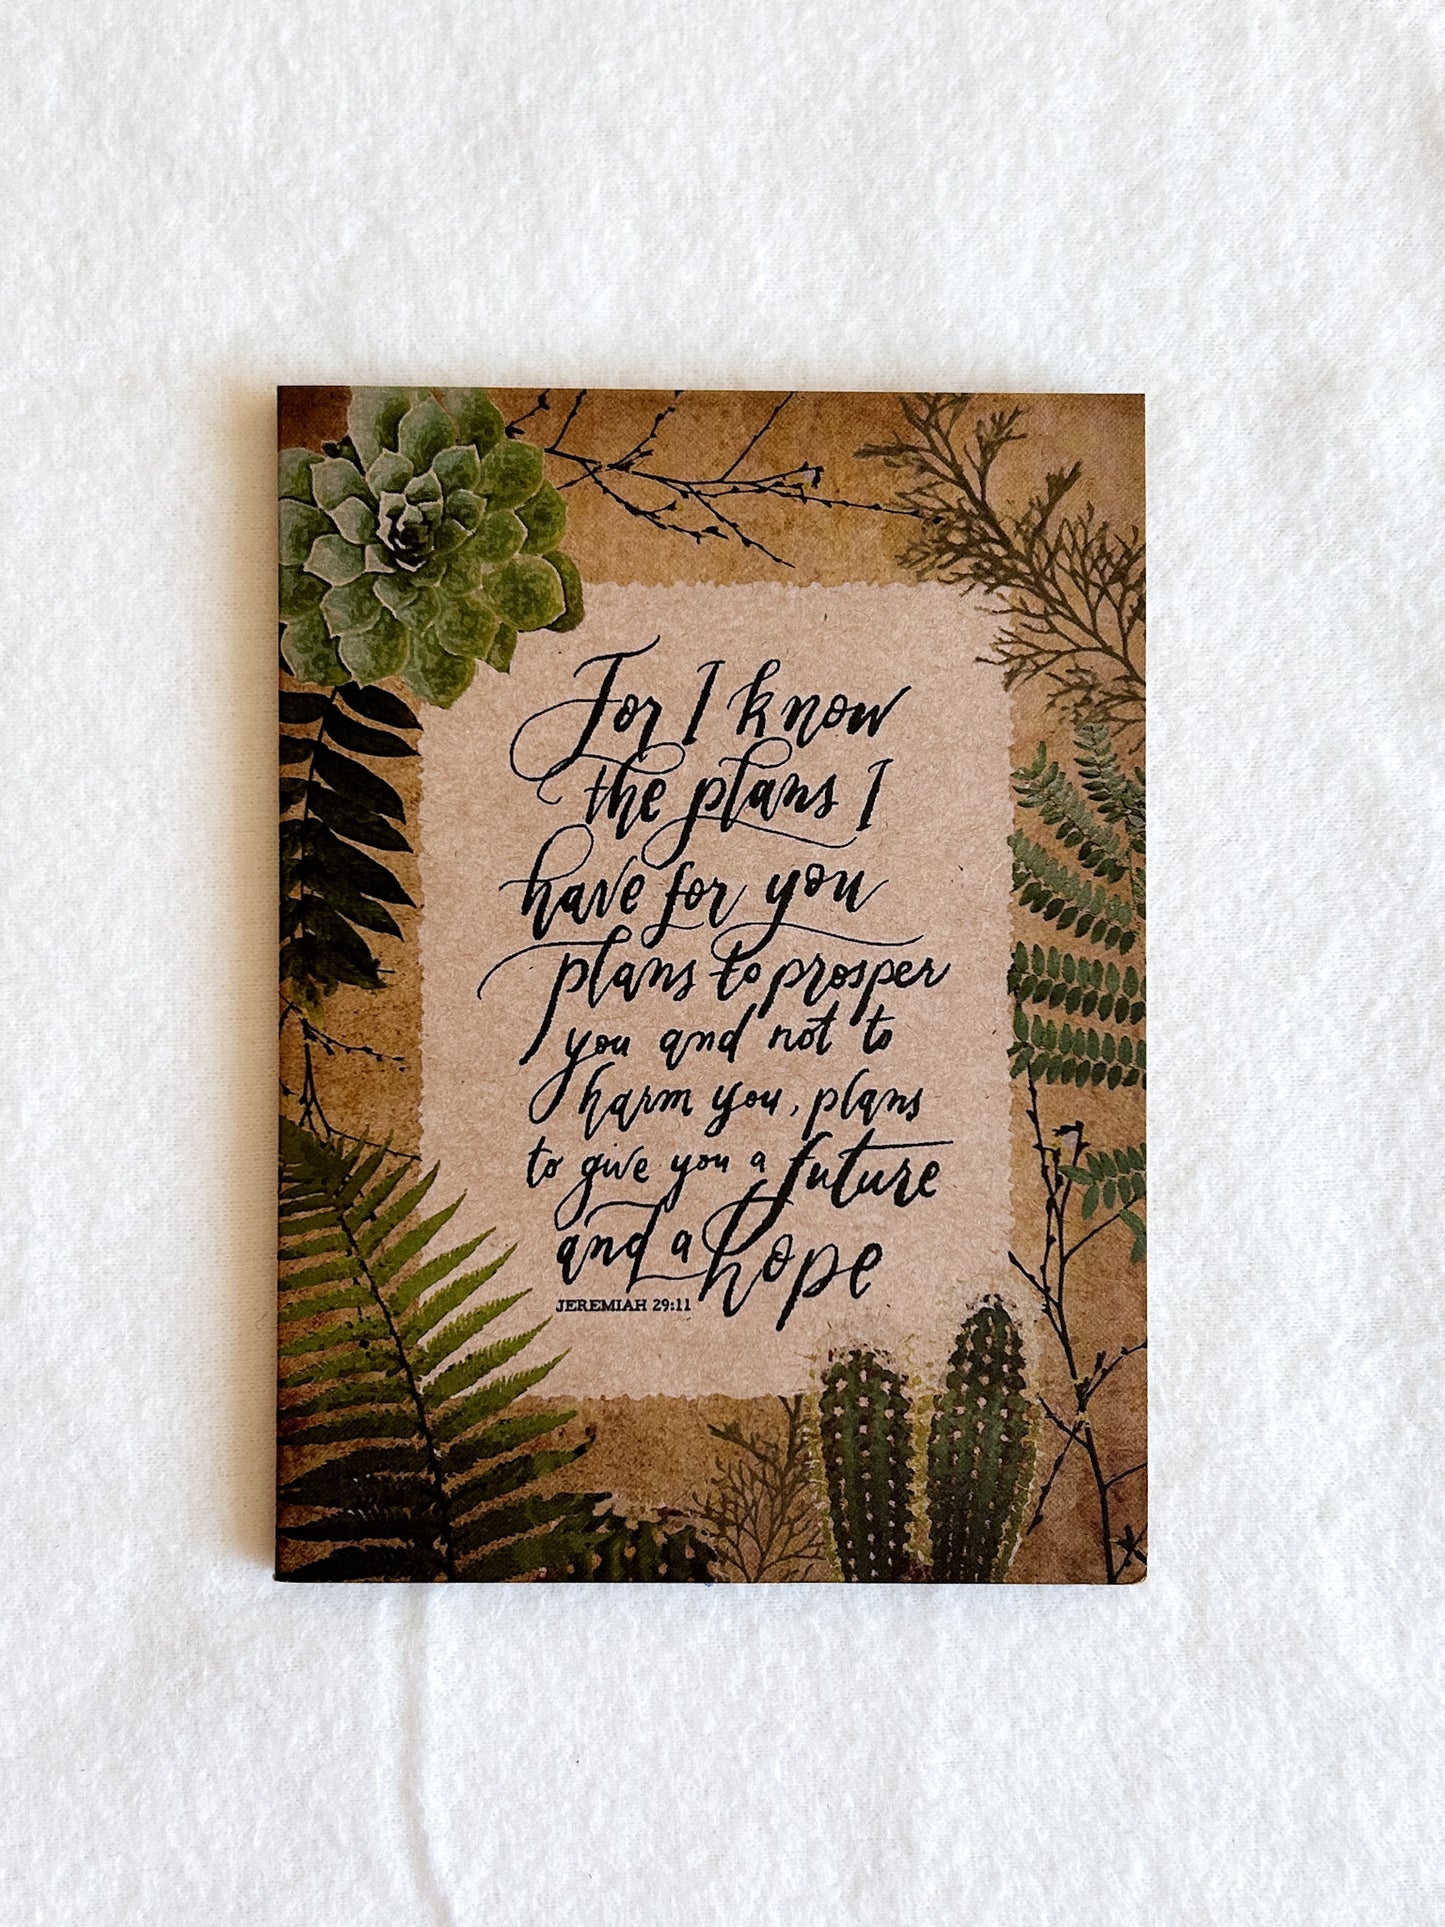 For I know
the plans I
have for you
plans to prosper
you and not to
harm you, plans
to give you a future
and a hope
JEREMIAH 29:11